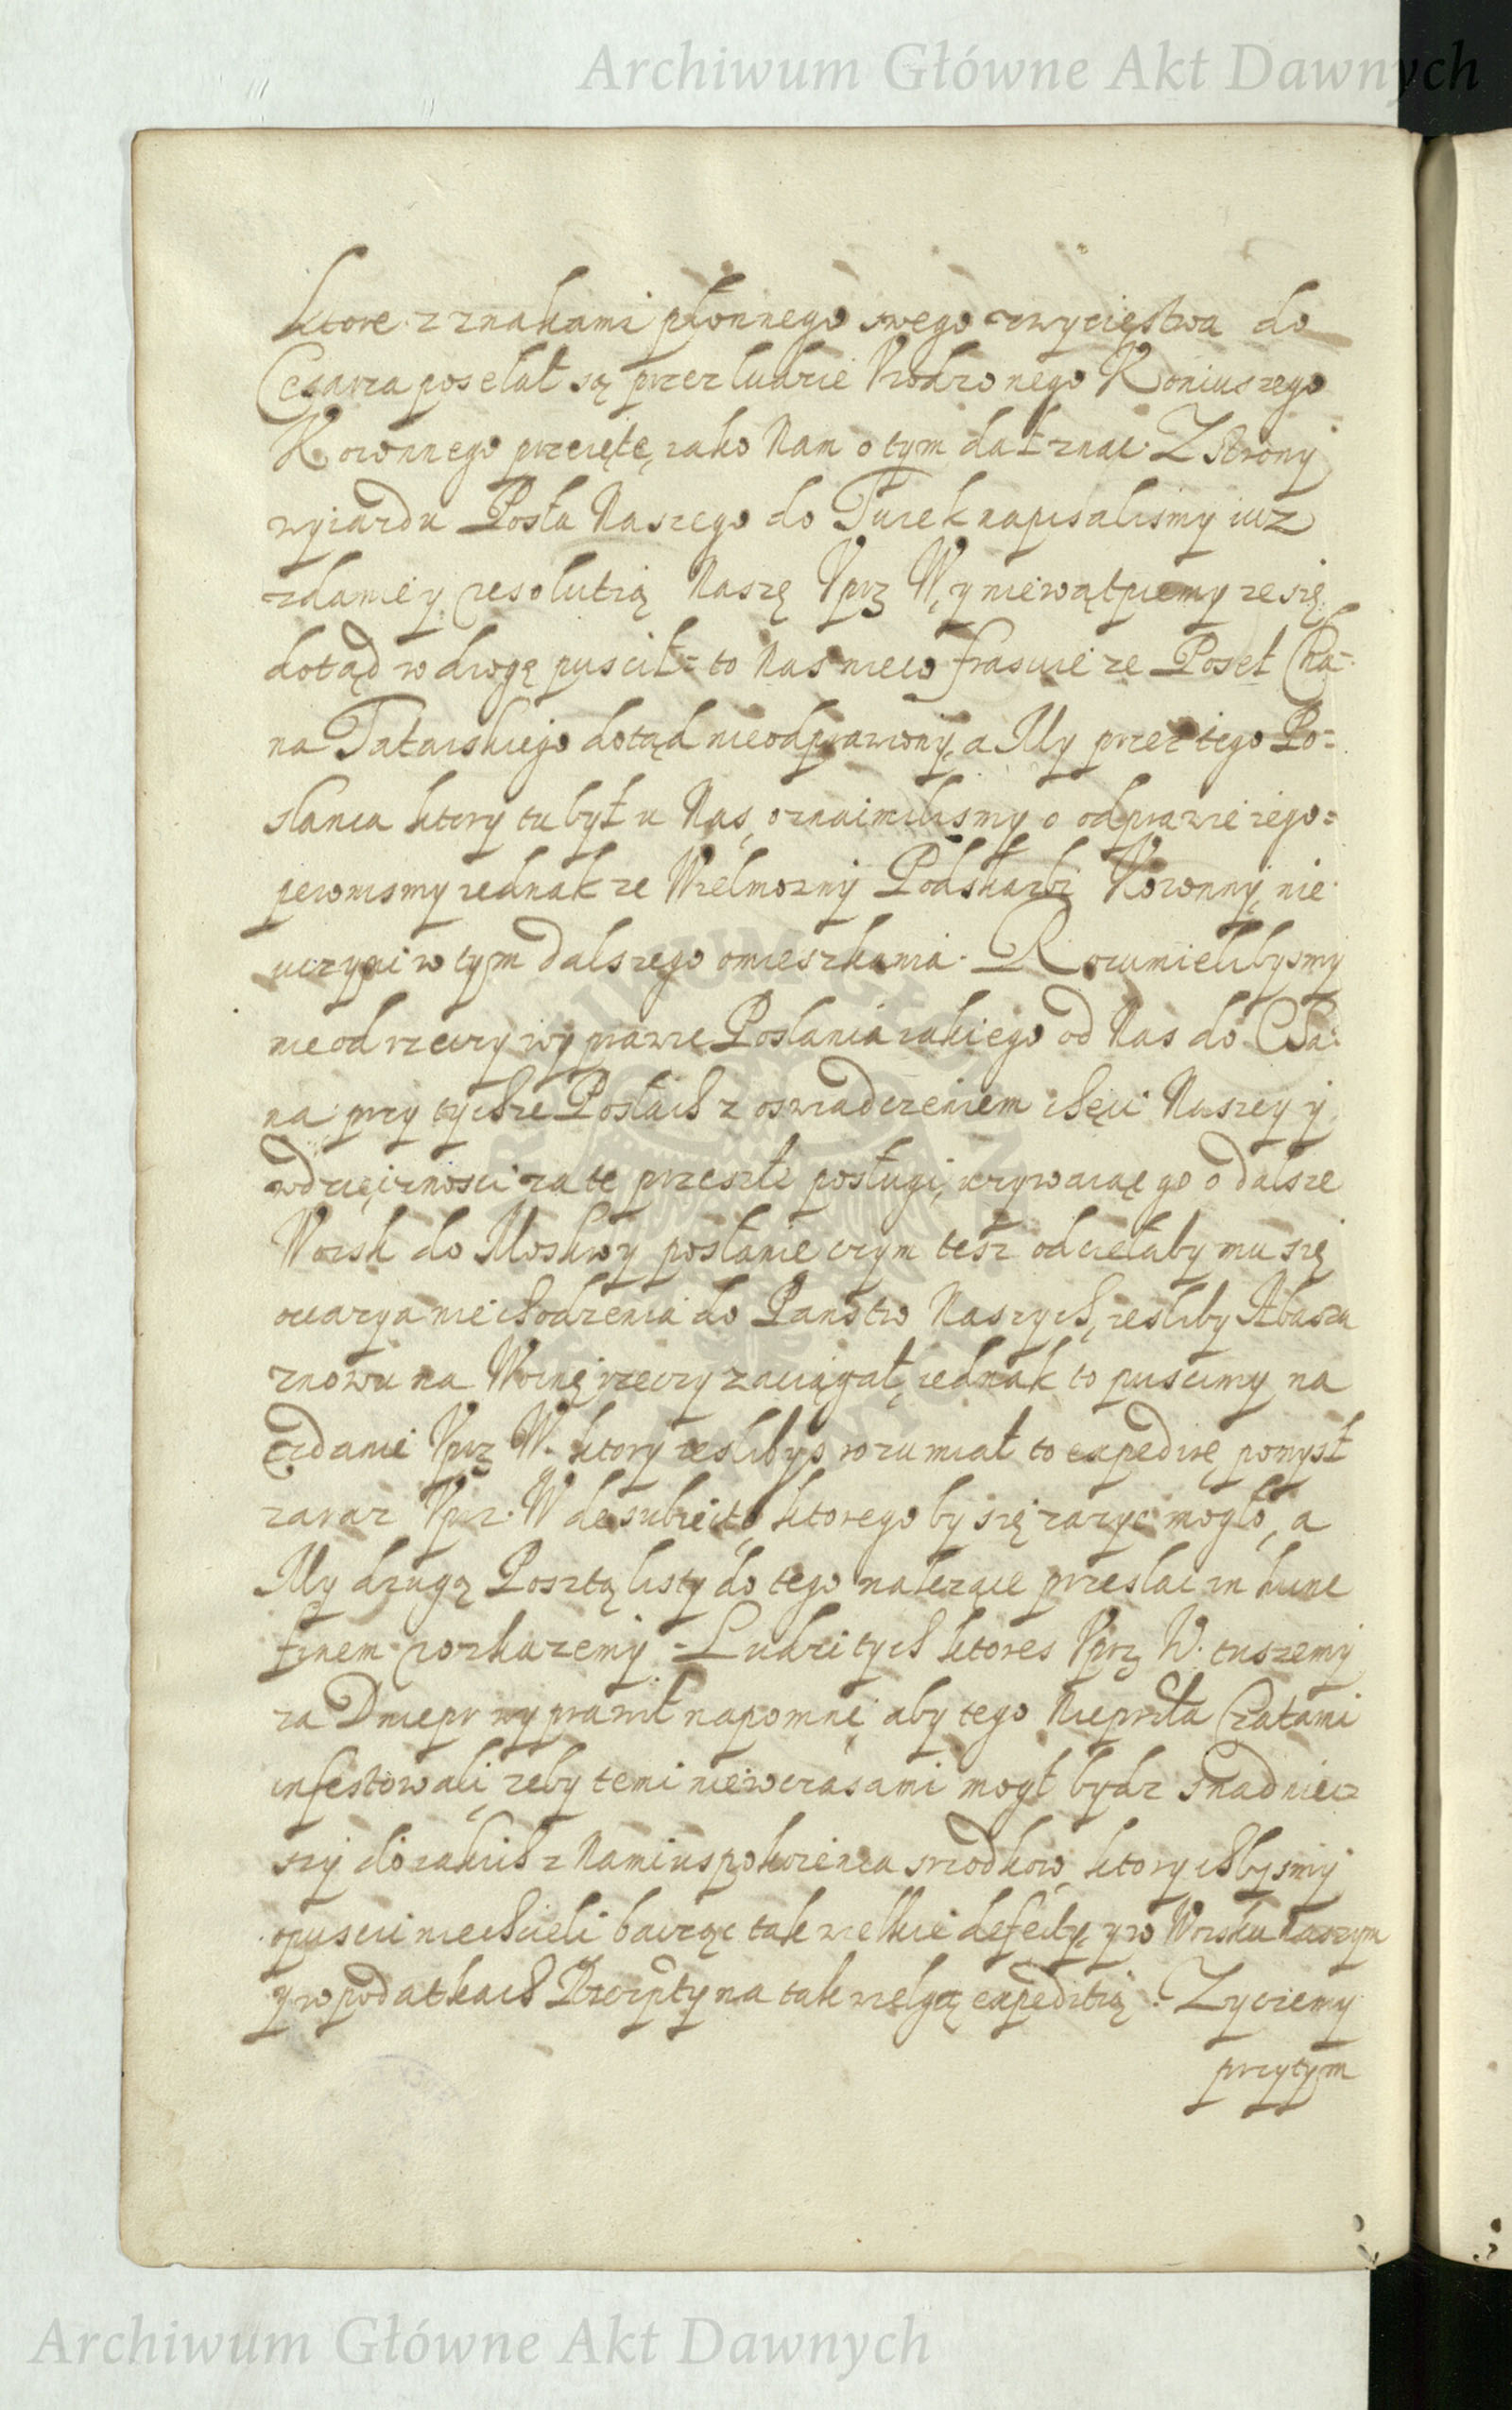 Archiwum Główne Akt Dawnych
ktore z znakami płonnego swego zwycięstwa do
Cesarza posełał są przez ludzie Vrodzonego Koniuszego
Koronnego przeięte, iako Nam o tym dał znac. Z strony
wyiazdu Posła Naszego do Turek napisalismy iuz
zdanie y resolutią Naszę Vprz W, y niewątpiemy ze się
dotąd w drogę puscił: to Nas nieco frasuie ze Poseł Cha=
na Tatarskiego dotąd nieodprawiony, a My przez tego Po=
slanca ktory tu był u Nas, oznaimilismy o odprawie iego=
pewnismy iednak ze Wielmozny Podskarbi Koronny, nie
uczyni w tym dalszego omieszkania. Rozumielibysmy
nieod rzeczy wyprawie Poslania iakiego od Nas do Cha=
na przy tychze Posłach z oswiadczeniem chęci Naszey y
wdzięcznosci za te przeszłe posługi, uzywaiąc go o dalsze
Woisk do Moskwy posłanie czym tesz odcięłaby mu się
okazya niechodzenia do Panstw Naszych, iesliby Abasza
znowu na Woinę rzeczy zaciągał, iednak to puscimy na
zdanie Vprz W. ktory ieslibys rozumiał to expedire, pomysl
zaraz Vprz. W de subiecto, ktorego by się zazyc mogło, a
My drugą Posztą listy do tego nalezące przesłac in hunc
finem rozkazemy. Ludzi tych ktores Vprz W. tuszemy
za Dniepr wyprawił napomni aby tego Nieprzla Czatami
infestowali, zeby temi niewczasami mogł bydz snadniei=
szy do iakich z Nami uspokoienia srzodkow, ktorychbysmy
opuscic niechcieli bacząc tak wielkie defecty, y w Woisku Naszym
y w podatkach Rzeczpty na tak wielgą expeditią. Zyczemy
przytym
Archiwum Główne Akt Dawnych